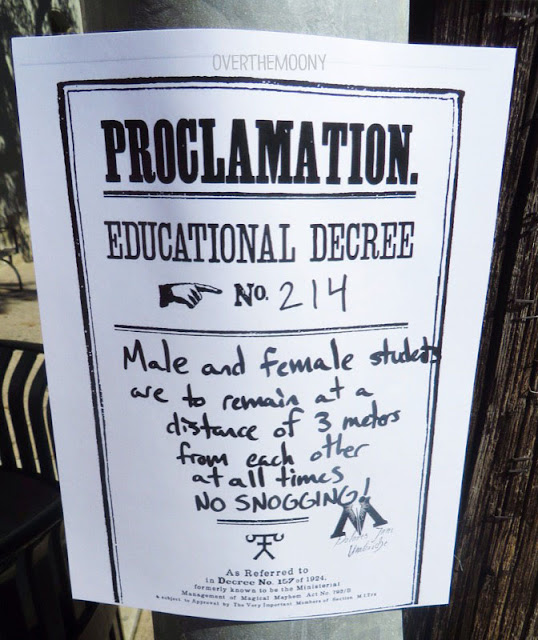 OVERTHEMOONY
PROCLAMATION.
EDUCATIONAL DECREE
No. 214
Male and female students
are to remain at a
distance of 3 meters
from each other
at all times
NO SNOGGING!
Dolores Jane
Umbridge
As Referred to
in Decree No. 157 of 1924,
formerly known to be the Ministerial
Management of Magical Mayhem Act No. 792/B.
& subject to Approval by The Very Important Members of Section